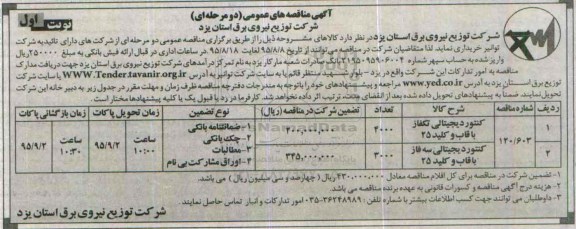 آگهی مناقصه های عمومی (دو مرحله ای)
نوبت اول
شرکت توزیع نیروی برق استان یزد
شرکت توزیع نیروی برق استان یزد در نظر دارد کالاهای مشروحه ذیل را از طریق برگزاری مناقصه عمومی دو مرحله ای از شرکت های دارای تائیدیه شرکت
توانیر خریداری نماید. لذا متقاضیان شرکت در مناقصه می توانند از تاریخ ۹۵/۸/۸ لغایت ۹۵/۸/۱۸ در ساعات اداری در قبال ارائه فیش بانکی به مبلغ ۲۵۰۰۰۰ ریال
واریز شده به حساب سپهر شماره بانک صادرات شعبه مدار کار یزد به نام تمرکز درآمدهای شرکت توزیع نیروی برق استان یزد جهت دریافت مدارک
مناقصه به امور تدارکات این شرکت واقع در یزد - بلوار شهید منتظر قائم یا به سایت شرکت توانیر به آدرس WWW.Tender.tavanir.org.ir یا سایت شرکت
توزیع برق استان یزد به آدرس www.yed.co.ir مراجعه و پیشنهادهای خود را با توجه به مندرجات دفترچه مناقصه ظرف زمان و مهلت مقرر در جدول زیر به دبیرخانه این شرکت
تحویل نمایند. ضمنا به پیشنهادهای تحویل داده شده بعد از انقضای مدت، ترتیب اثر داده نخواهد شد. کارفرما در رد یا قبول یک یا کلیه پیشنهادها مختار است.
ردیف شماره مناقصه شرح کالا تعداد تضمین شرکت در مناقصه (ریال) نوع تضمین زمان تحویل پاکات زمان بازگشائی پاکات
۱ ۱۲۰/۶۰۳ کنتور دیجیتالی تکفاز با قاب و کلید ۲۵ ۲۰۰۰ ۱- ضمانتنامه بانکی ساعت ۱۰:۰۰ ۹۵/۹/۲ ساعت ۱۰:۳۰ ۹۵/۹/۲
۲ کنتور دیجیتالی سه فاز با قاب و کلید ۲۵ ۳۰۰۰ ۳۴۵,۰۰۰,۰۰۰ ۲- چک بانکی
۳- مطالبات
۴- اوراق مشارکت بی نام
۱- تضمین شرکت در مناقصه برای کل اقلام مناقصه معادل ۴۳۰,۰۰۰,۰۰۰ ریال (چهارصد و سی میلیون ریال) می باشد.
۲- هزینه درج آگهی مناقصه و کسورات قانونی به عهده برنده مناقصه می باشد.
۳- داوطلبان می توانند جهت کسب اطلاعات بیشتر با شماره تلفن: ۳۶۲۴۸۹۸۹-۰۳۵ امور تدارکات و انبار تماس حاصل نمایند
شرکت توزیع نیروی برق استان یزد